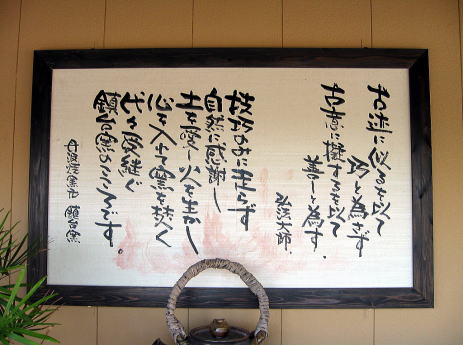 古迹に似るを以て
巧と為さず
古意に擬するを以て
善しと為す
弘法大師
技巧のみに走らず
自然に感謝し
土を愛し火を生かし
心を入れて窯を焚く
代々受継ぐ
鎮台窯のこころです。
丹波焼窯元 鎮台窯